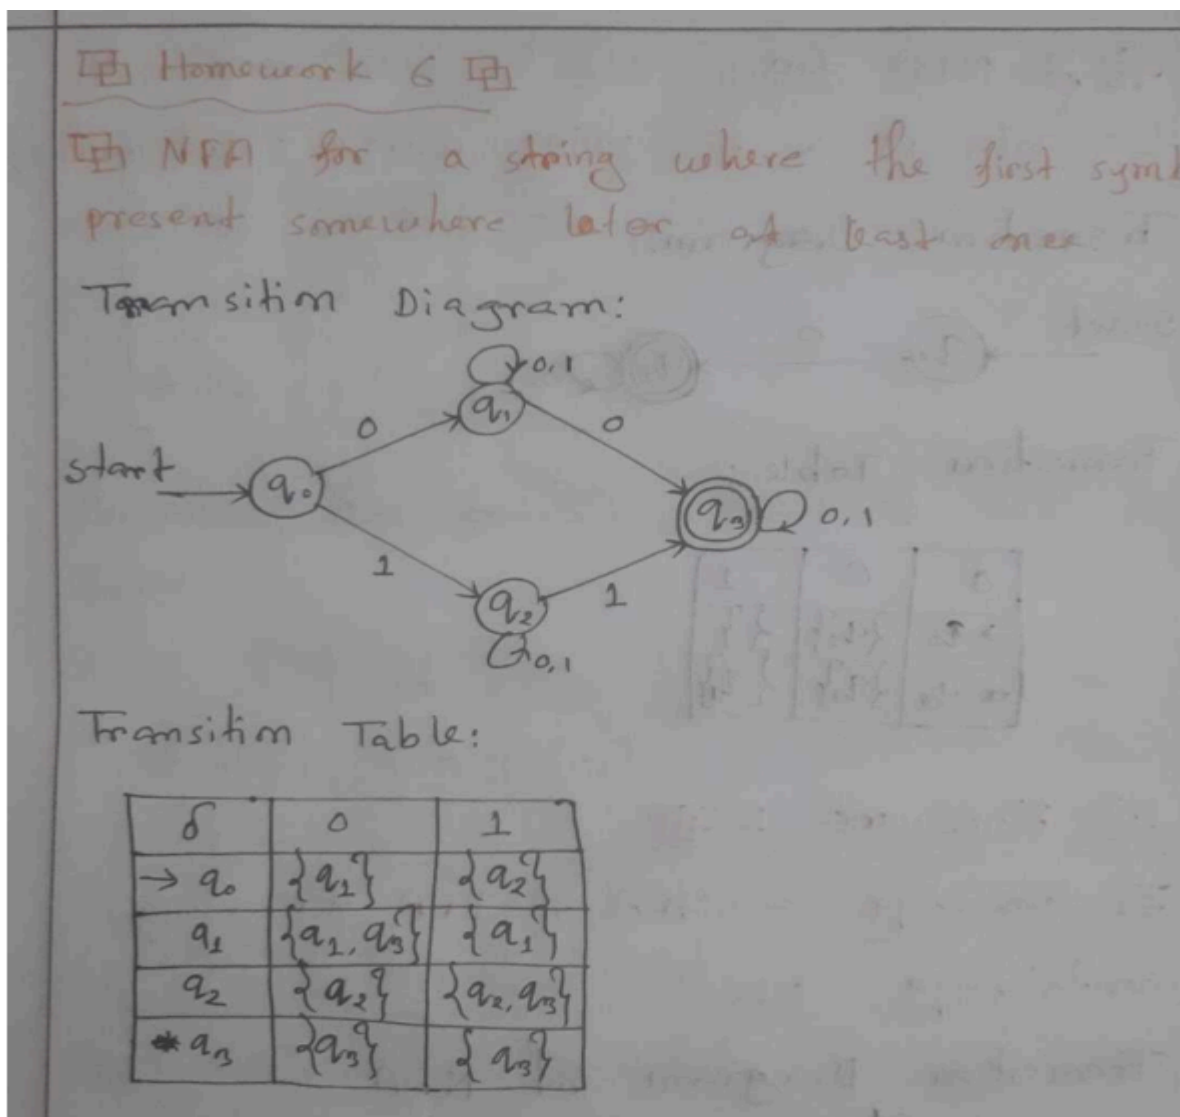 Homework 6
NFA for a string where the first
present somewhere later at least once.
Transition Diagram:
0,1
q₁
0
0
start
q₀
q₃
0,1
1
1
q₂
0,1
Transition Table:
δ 0 1
→ q₀ {q₁} {q₂}
q₁ {q₁, q₃} {q₁}
q₂ {q₂} {q₂, q₃}
* q₃ {q₃} {q₃}